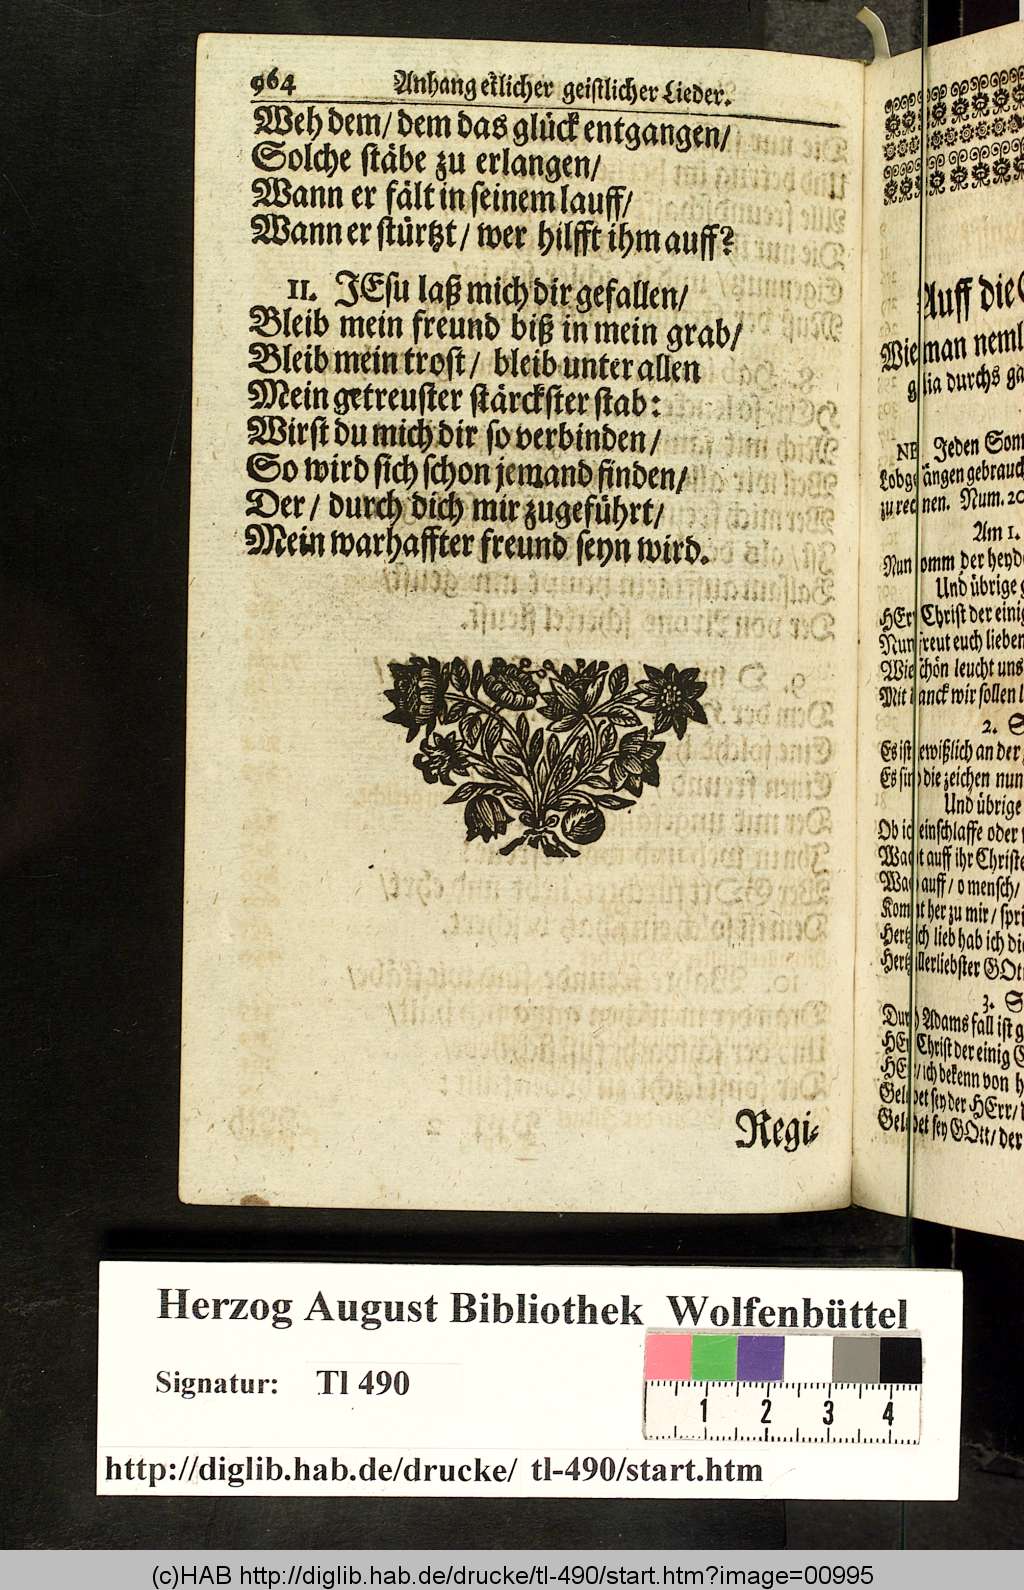 964 Anhang etlicher geistlicher Lieder.
Weh dem/ dem das glück entgangen/
Solche stäbe zu erlangen/
Wann er fält in seinem lauff/
Wann er stürtzt/ wer hilfft ihm auff?
11. JEsu laß mich dir gefallen/
Bleib mein freund biß in mein grab/
Bleib mein trost/ bleib unter allen
Mein getreuster stärckster stab:
Wirst du mich dir so verbinden/
So wird sich schon jemand finden/
Der/ durch dich mir zugeführt/
Mein warhaffter freund seyn wird.
Regi-
Auff die
Wie man neml
galia durchs ga
NB. Jeden Sonn
Lobgesängen gebrauch
zu rechnen. Num. 20
Am 1.
Nun komm der heyd
Und übrige g
HErr Christ der einig
Nun freut euch lieben
Wie schön leucht uns
Mit danck wir sollen l
2. S
Es ist gewißlich an der
Es sind die zeichen nun
Und übrige
Ob ich einschlaffe oder
Wacht auff ihr Christe
Wach auff/ o mensch/
Kommt her zu mir/ spri
Hertzlich lieb hab ich di
Hertzallerliebster GOtt
3. S
Durch Adams fall ist g
HErr Christ der einig G
HErr/ ich bekenn von h
Gelobet sey der HErr/
Gelobet sey GOtt/ der
Herzog August Bibliothek Wolfenbüttel
Signatur: Tl 490
1 2 3 4
http://diglib.hab.de/drucke/ tl-490/start.htm
(c)HAB http://diglib.hab.de/drucke/tl-490/start.htm?image=00995